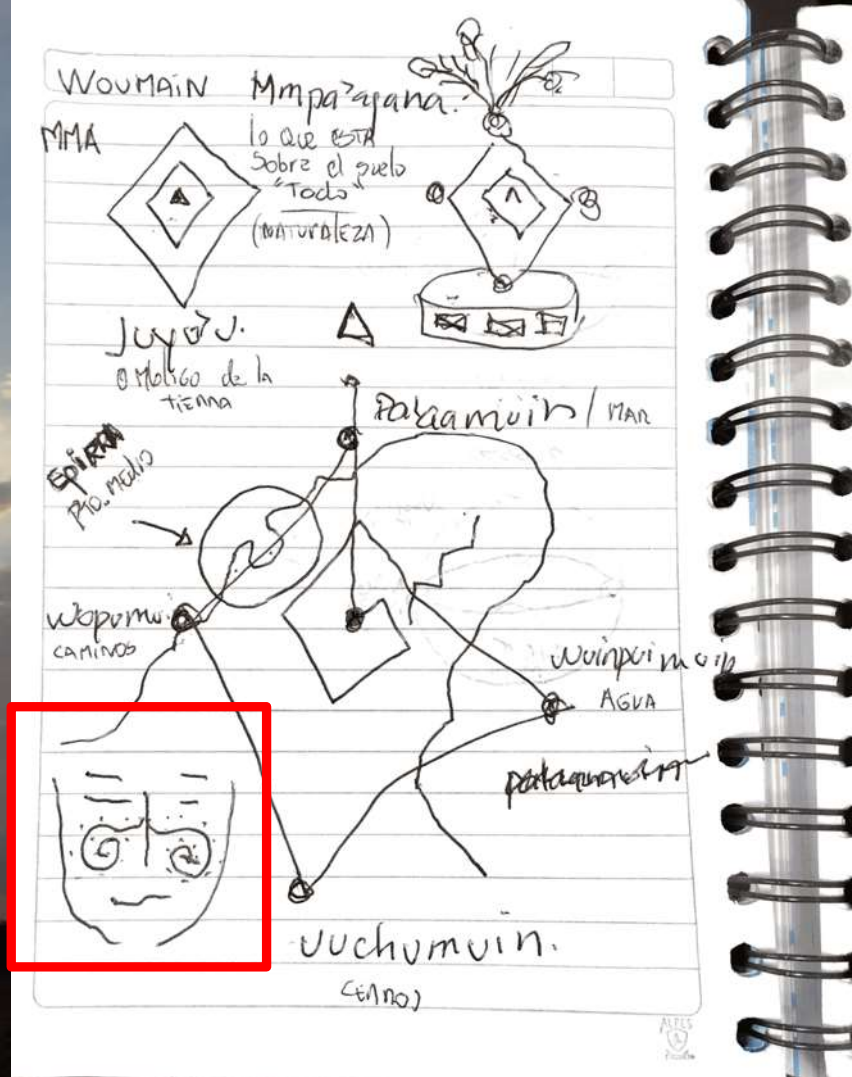 WOUMAiN
Mmpa'ajana.
MMA
lo QUE ESTA
Sobre el suelo
"Todo"
(NATURALEZA)
Juyo'u.
OMbligo de la
tiERRA
Palaamuin / MAR
EpiRRA
Pto. MEdio
Wopumui
CAMINOS
wuinpuimuin
AGUA
uuchumuin.
CERRO)
ALPES